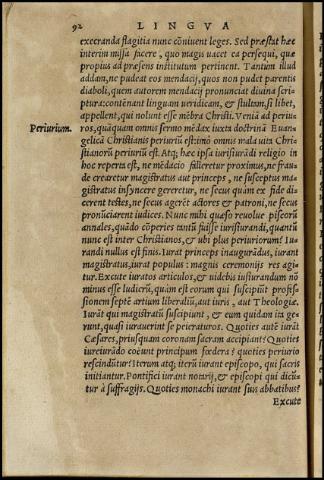 92 LINGVA
execranda flagitia nunc cōnivent leges. Sed præstat hæc
interim missa facere, quo magis vacet ea persequi, quæ
propius ad præsens institutum pertinent. Tantum illud
addam, ne pudeat eos mendacij, quos non pudet parentis
diaboli, quem autorem mendacij pronunciat divina scri-
ptura: contēnant linguam veridicam, & stultam, si libet,
appellent, qui nolunt esse mēbra Christi. Venio ad periu-
Periurium.
ros, quāquam omnis sermo mēdax iuxta doctrinā Euan-
gelicā Christianis periuriū est: imò omnis mala vita Chri-
stianorū periuriū est. Atq; hæc ipsa iurisiurādi religio in
hoc reperta est, ne mēdacio falleretur proximus, ne frau-
de crearetur magistratus aut princeps, ne susceptus ma-
gistratus insyncere gereretur, ne secus quàm ex fide di-
cerent testes, ne secus agerēt actores & patroni, ne secus
pronūciarent iudices. Nunc mihi quæso revolue priscorū
annales, quādo cōperies tantū fuisse iurisiurandi, quantū
nunc est inter Christianos, & ubi plus periuriorum? Iu-
randi nullus est finis. Iurat princeps inauguradus, iurant
magistratus, iurat populus: magnis ceremonijs res agi-
tur. Excute iuratos articulos, & videbis iusiurandum nō
minus esse ludicrū, quàm est eorum qui suscipiūt profes-
sionem septē artium liberaliū, aut iuris, aut Theologiæ.
Iurāt qui magistratū suscipiunt, & eum quidam ita ge-
runt, quasi iuraverint se peieraturos. Quoties autē iurāt
Cæsares, priusquam coronam sacram accipiant? Quoties
iureiurādo coëunt principum fœdera? quoties periurio
rescindūtur? Iterum atq; iterū iurant episcopo, qui sacris
initiantur. Pontifici iurant notarij, & episcopi qui dicū-
tur à suffragijs. Quoties monachi iurant suis abbatibus?
Excute